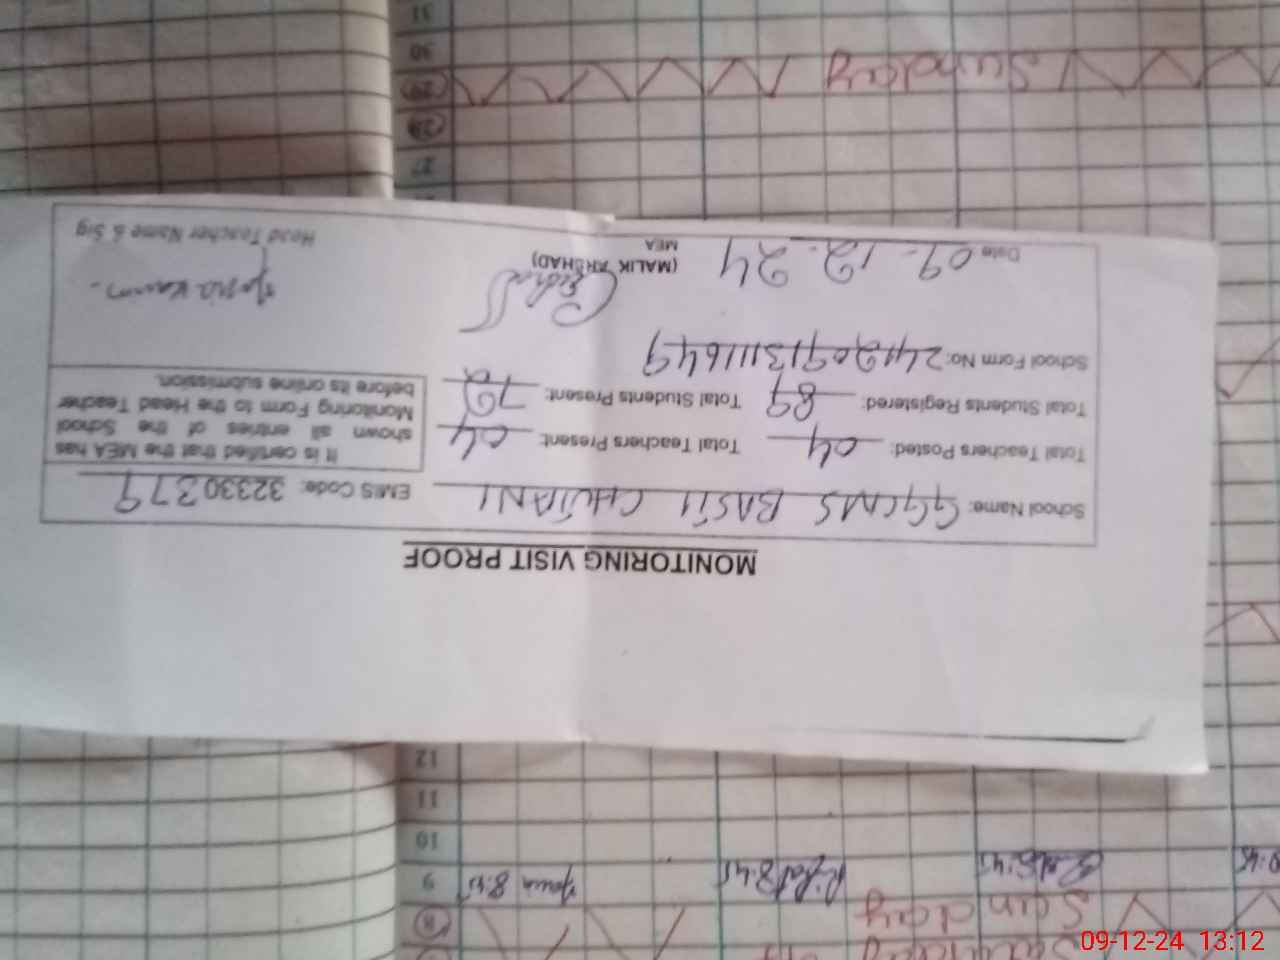 MONITORING VISIT PROOF
School Name: GGCMS BASTI CHUTANI EMIS Code: 32330379
Total Teachers Posted: 04 Total Teachers Present: 04
Total Students Registered: 89 Total Students Present: 72
School Form No:
It is certified that the MEA has
shown all entries of the School
Monitoring Form to the Head Teacher
before its online submission.
(MALIK ARSHAD)
MEA
Date 09-12-24
Head Teacher Name & Sig
Saturday
Sunday
8
9 8:45 Rifat 8:45 8:45 8:45
10
11
12
27
28
29 Sunday
30
31
09-12-24 13:12